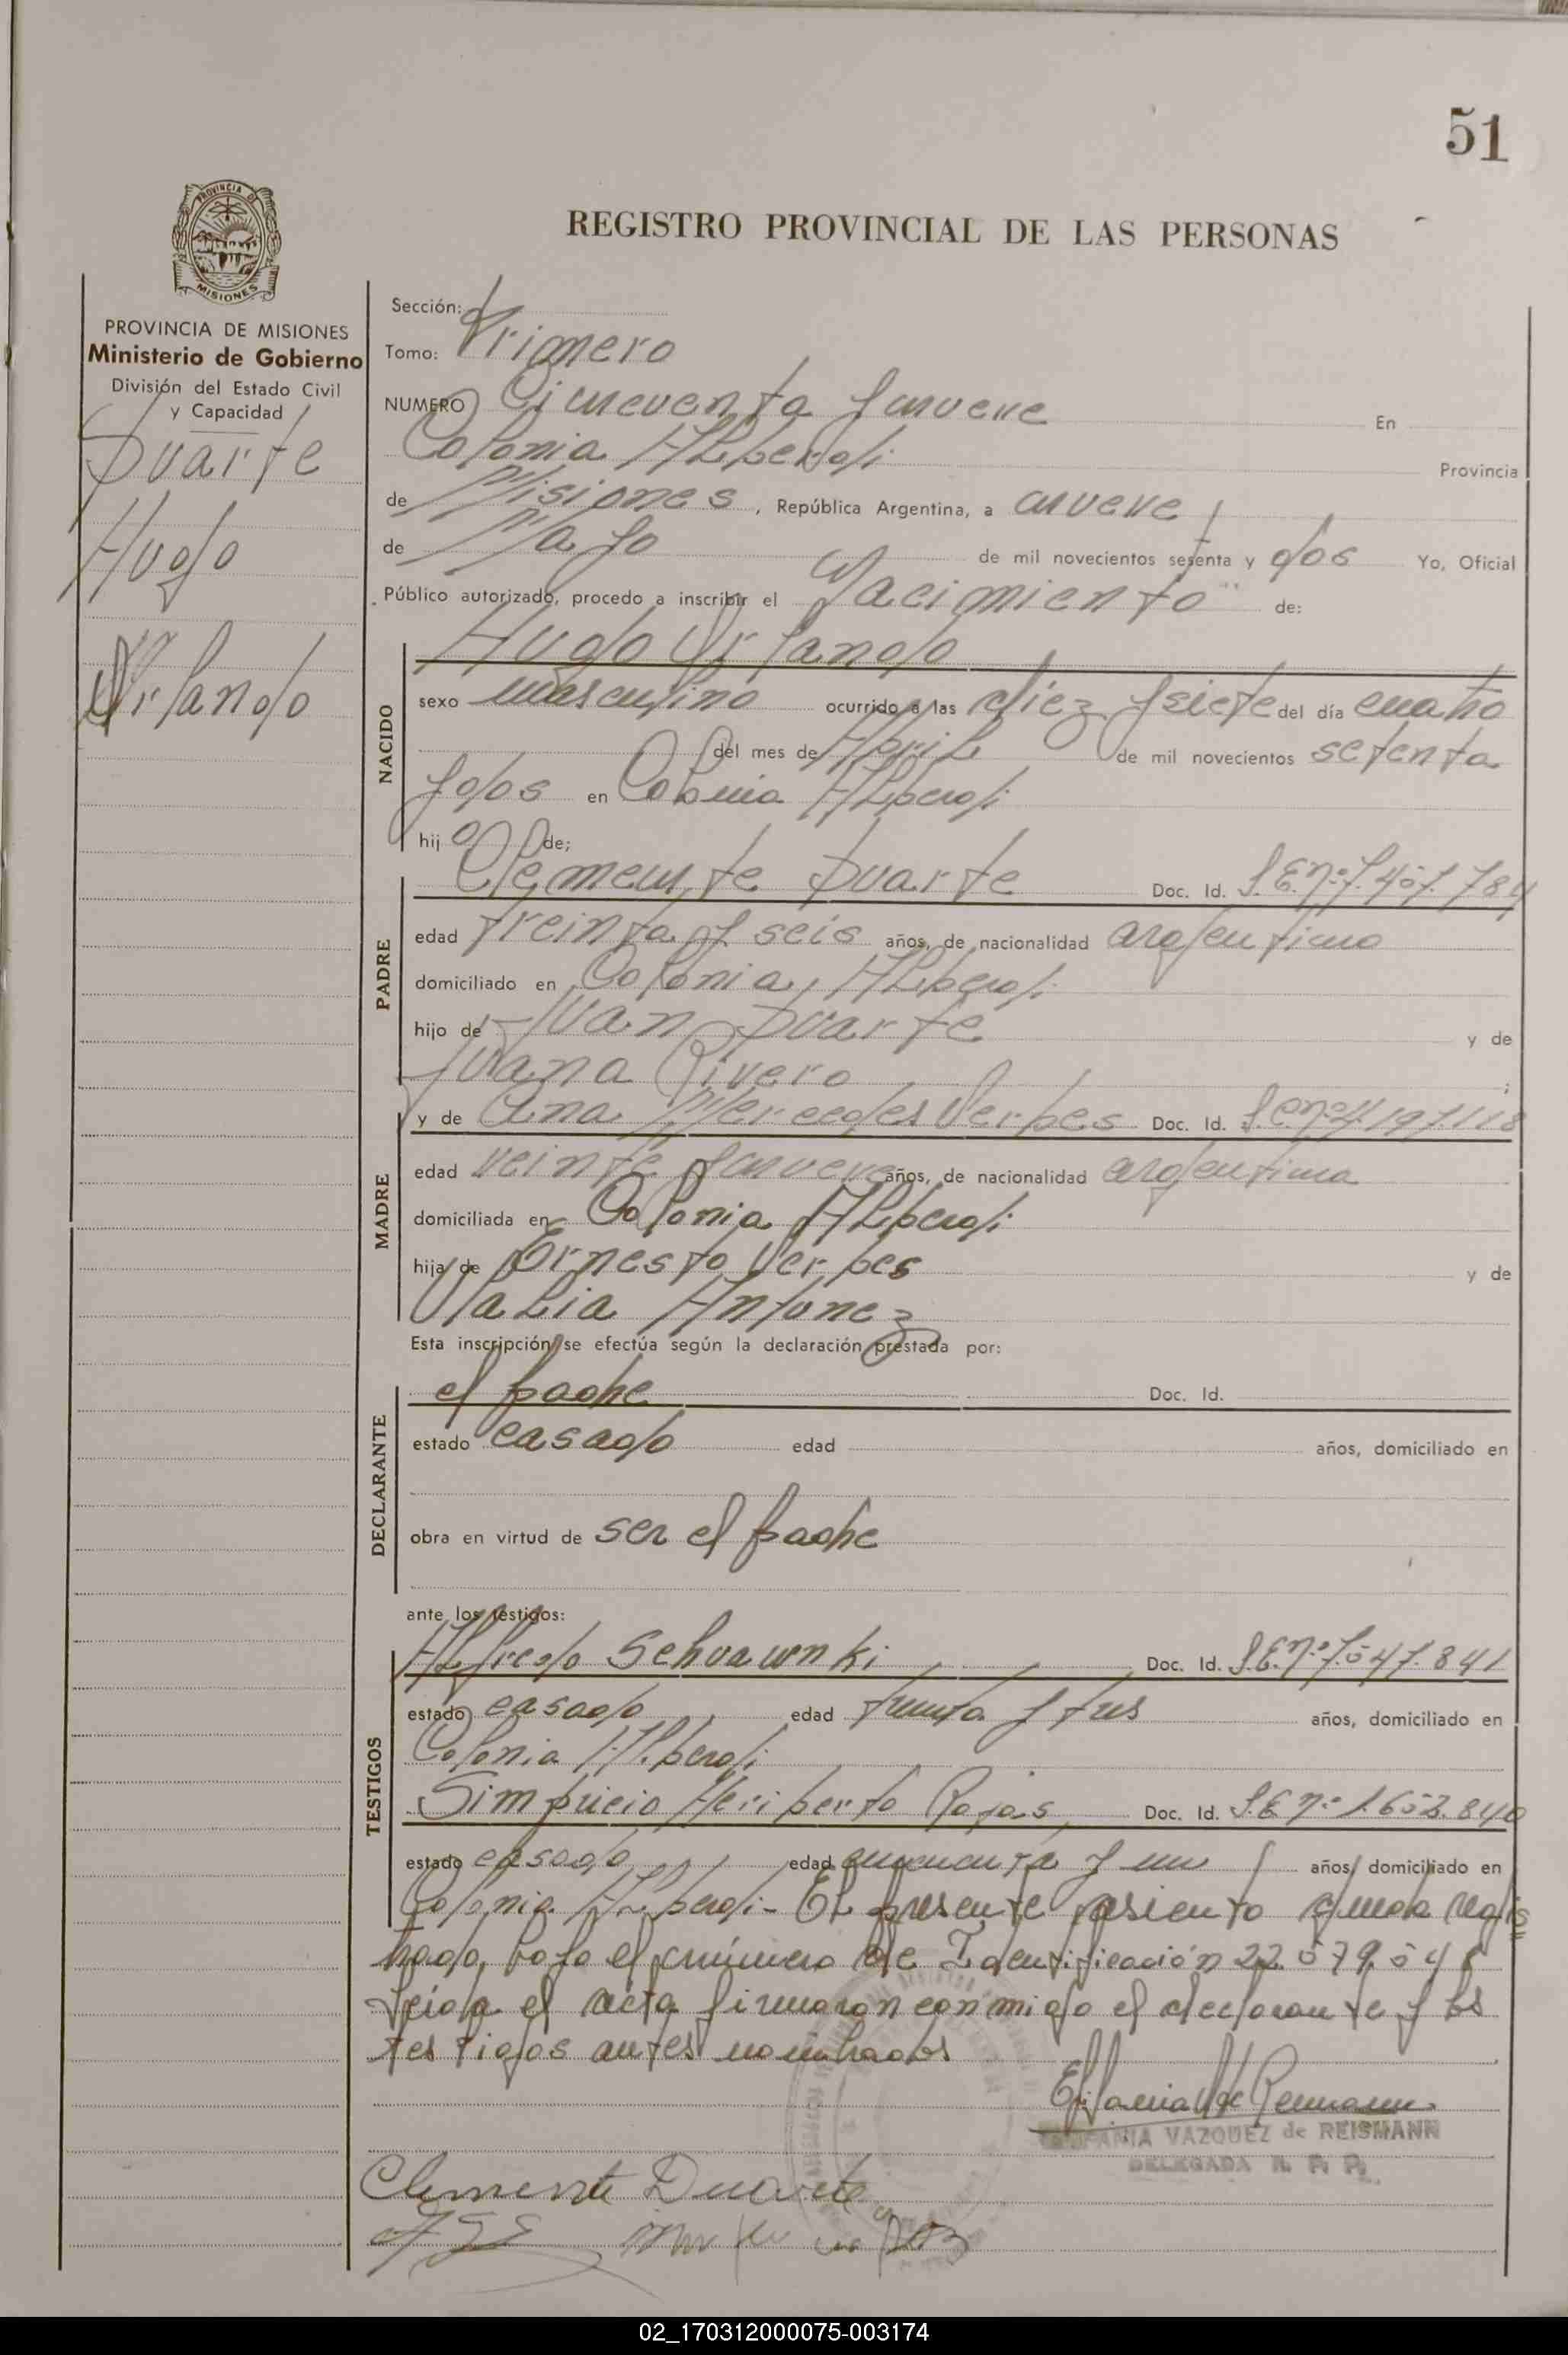 51
PROVINCIA DE
MISIONES
REGISTRO PROVINCIAL DE LAS PERSONAS
PROVINCIA DE MISIONES
Ministerio de Gobierno
División del Estado Civil
y Capacidad
Duarte
Hugo
Orlando
Sección:
Tomo: Primero
NUMERO Cincuenta y nueve En
Colonia Alberdi Provincia
de Misiones, República Argentina, a nueve
de Mayo de mil novecientos setenta y dos Yo, Oficial
Público autorizado, procedo a inscribir el Nacimiento de:
NACIDO
Hugo Orlando
sexo masculino ocurrido a las diez y siete del día cuatro
del mes de Abril de mil novecientos setenta
y dos en Colonia Alberdi
hijo de;
PADRE
Clemente Duarte Doc. Id. L.E. nº 7.457.784
edad treinta y seis años, de nacionalidad argentino
domiciliado en Colonia Alberdi
hijo de Juan Duarte y de
Juana Rivero ;
MADRE
y de Ana Mercedes Verbes Doc. Id. nº 4.197.118
edad veinte y nueve años, de nacionalidad argentina
domiciliada en Colonia Alberdi
hija de Ernesto Verbes y de
Antonez
Esta inscripción se efectúa según la declaración prestada por:
DECLARANTE
el padre Doc. Id.
estado casado edad años, domiciliado en
obra en virtud de ser el padre
ante los testigos:
TESTIGOS
Alfredo Schuawnki Doc. Id. L.E. nº 7.547.841
estado casado edad treinta y tres años, domiciliado en
Colonia Alberdi
Simpricio Heriberto Rojas Doc. Id. L.E. nº 1.652.840
estado casado edad cincuenta y un años, domiciliado en
Colonia Alberdi- El presente asiento queda regis
trado bajo el número de Identificación 22.579.54
leida el acta firmaron conmigo el declarante y los
testigos antes nombrados
VAZQUEZ de REISMANN
DELEGADA R. P. P.
Clemente Duarte
02_170312000075-003174